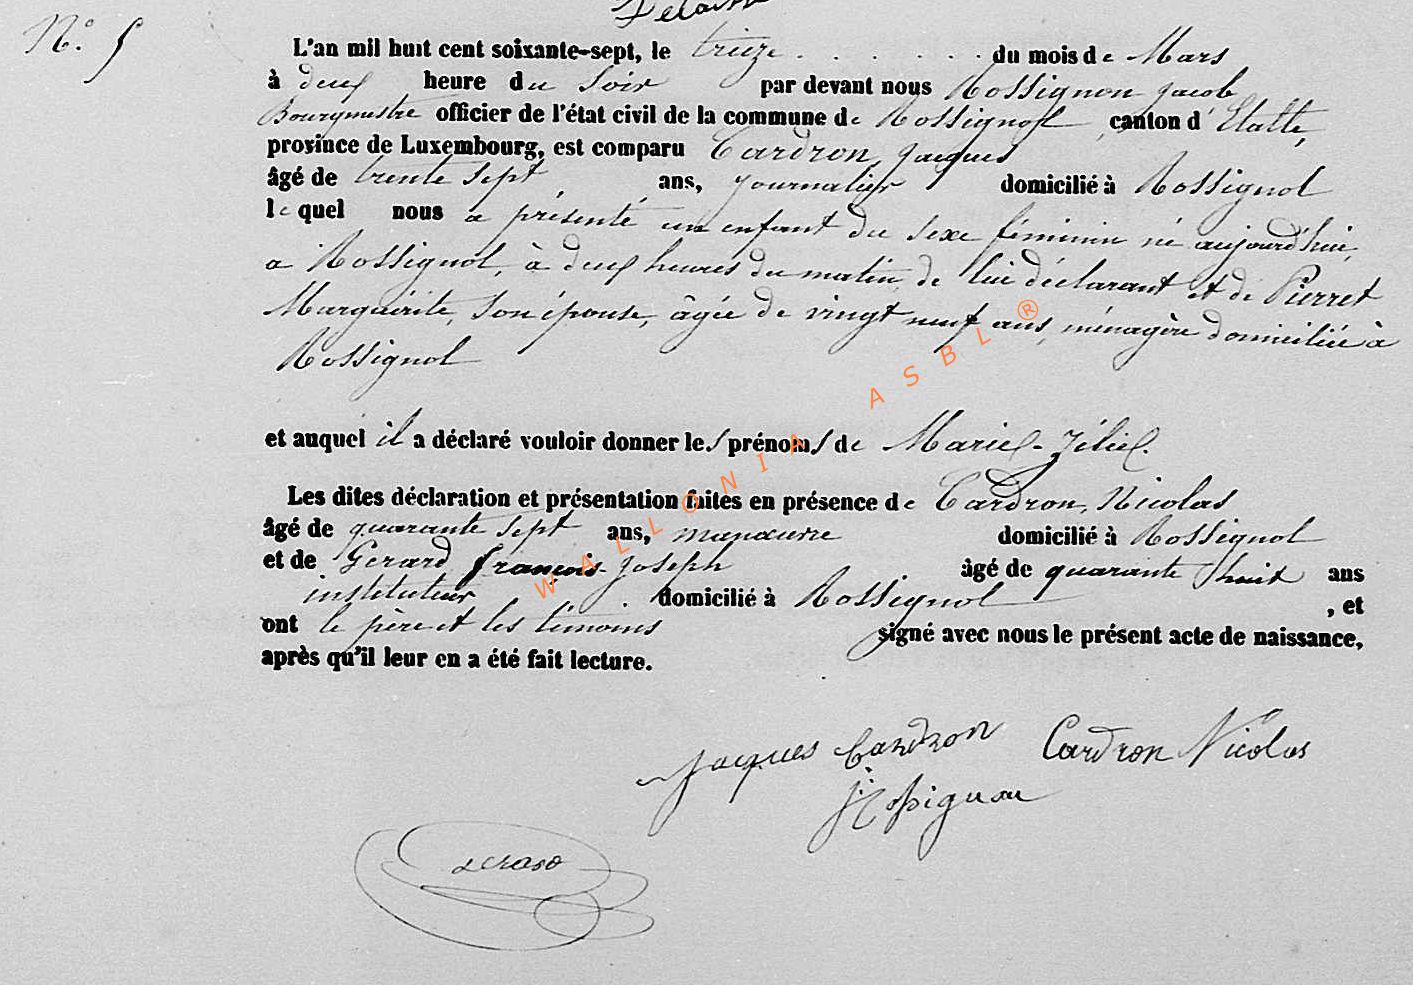 N.° 5
L'an mil huit cent soixante-sept, le treize . . . . . . du mois de Mars
à deux heure du Soir par devant nous Rossignon Jacob
Bourgmestre officier de l'état civil de la commune de Rossignol, canton d'Etalle,
province de Luxembourg, est comparu Cardron, Jacques
âgé de trente sept, ans, journalier domicilié à Rossignol
lequel nous a présenté un enfant du sexe féminin né aujourd'hui,
a Rossignol, à deux heures du matin, de lui déclarant et de Pierret
Marguérite, son épouse, âgée de vingt neuf ans, ménagère domiciliée à
Rossignol
et auquel il a déclaré vouloir donner les prénoms de Marie-Zélie.
Les dites déclaration et présentation faites en présence de Cardron, Nicolas
âgé de quarante sept ans, manœuvre domicilié à Rossignol
et de Gerard françois-Joseph âgé de quarante huit ans
instituteur domicilié à Rossignol , et
ont le père et les témoins signé avec nous le présent acte de naissance,
après qu'il leur en a été fait lecture.
Jacques Cardron Cardron Nicolas
WALLONIA ASBL ®